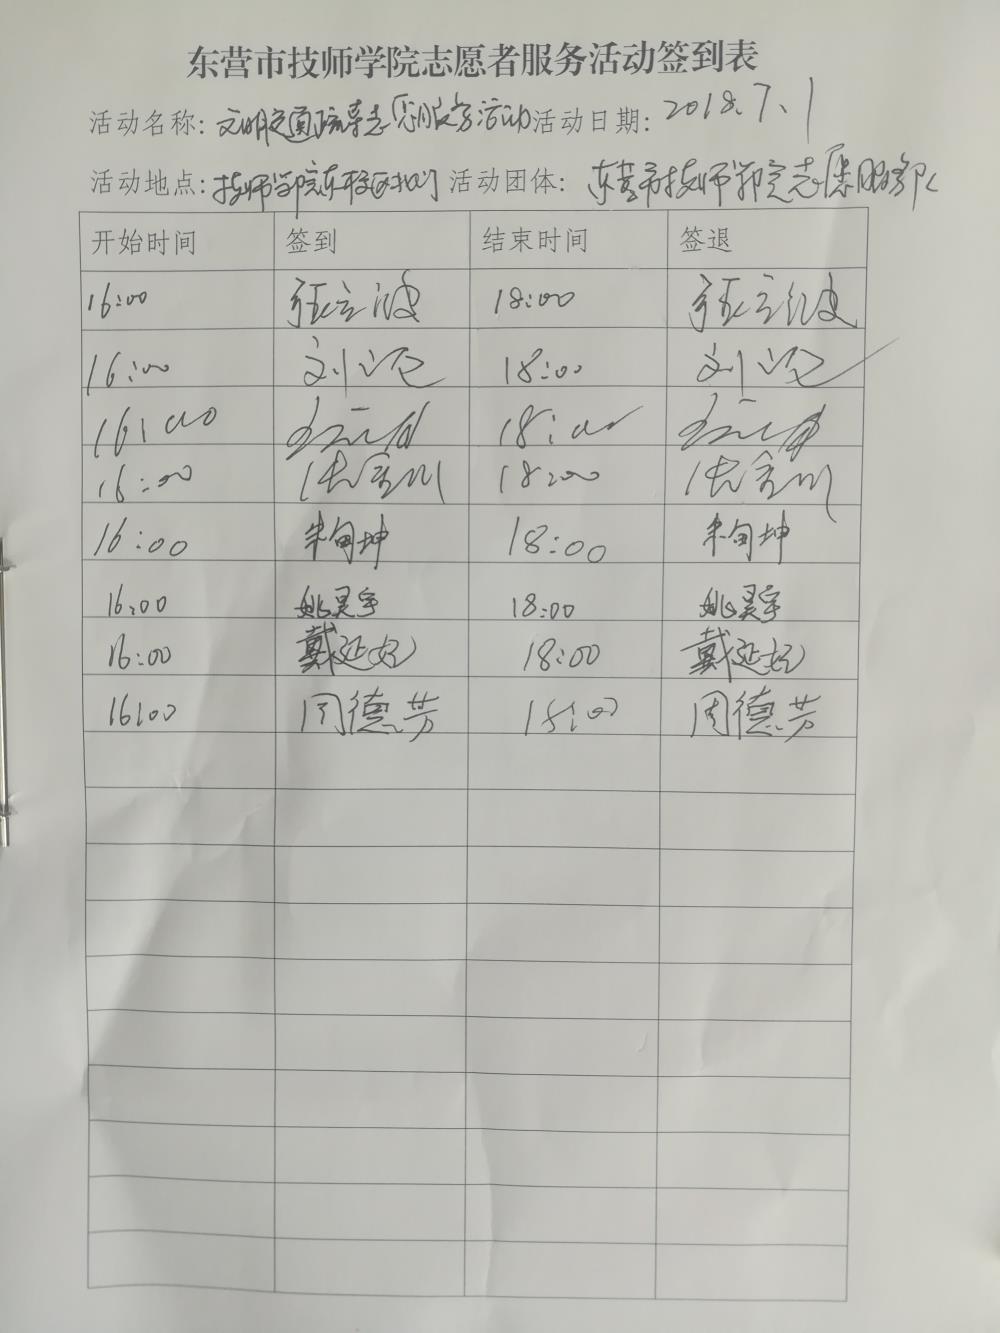 东营市技师学院志愿者服务活动签到表
活动名称: 文明交通疏导志愿服务活动 活动日期: 2018.7.1
活动地点: 技师学院东校区北门 活动团体: 东营市技师学院志愿服务队
开始时间 签到 结束时间 签退
16:00 张立波 18:00 张立波
16:00 刘 18:00 刘
16:00 18:00
16:00 18:00
16:00 朱甸坤 18:00 朱甸坤
16:00 姚昊宇 18:00 姚昊宇
16:00 戴延好 18:00 戴延好
16:00 周德芳 18:00 周德芳